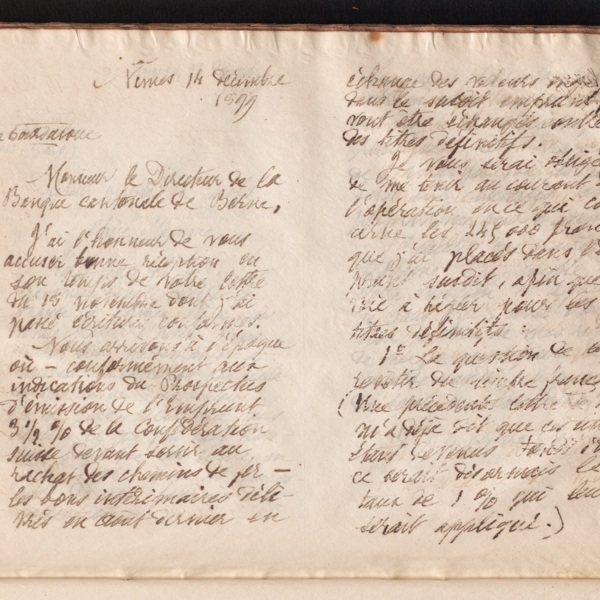 Nîmes 14 décembre
1899
Monsieur le Directeur de la
Banque cantonale de Berne,
J'ai l'honneur de vous
accuser bonne réception en
son temps de votre lettre
du 15 novembre dont j'ai
passé écritures conformes.
Nous arrivons à l'époque
où – conformément aux
indications du Prospectus
d'émission de l'Emprunt
3½ % de la Confédération
suisse devant servir au
rachat des chemins de fer –
les bons intérimaires déli-
vrés en août dernier en
échange des valeurs
dans le susdit emprunt
vont être échangés contre
des titres définitifs.
Je vous serai obligé
de me tenir au courant
l'opération en ce qui con
cerne les 245 000 fran
que j'ai placés dans l'
susdit, afin que
à pour les
titres définitifs :
1º La question de
du timbre fran
(Une précédente lettre
m'a déjà dit que ces
ce serait désormais le
taux de 1 % qui leur
serait appliqué.)